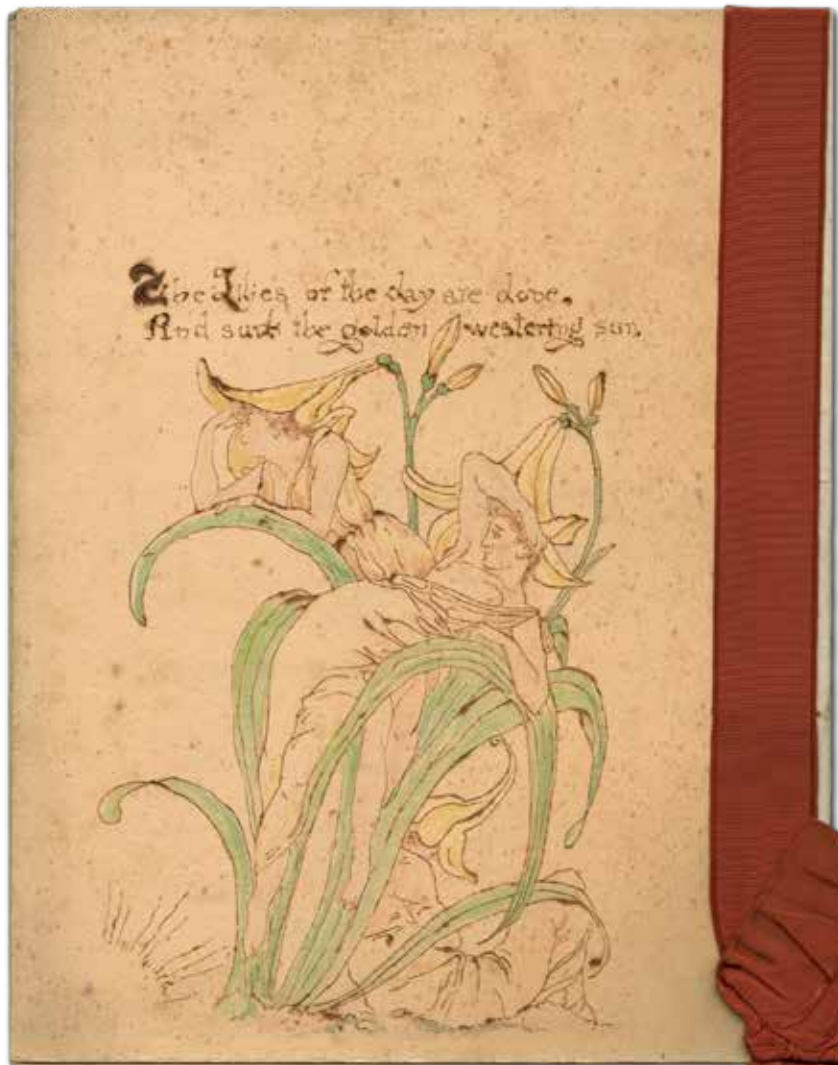 The Lilies of the day are done,
And sunk the golden westering sun.